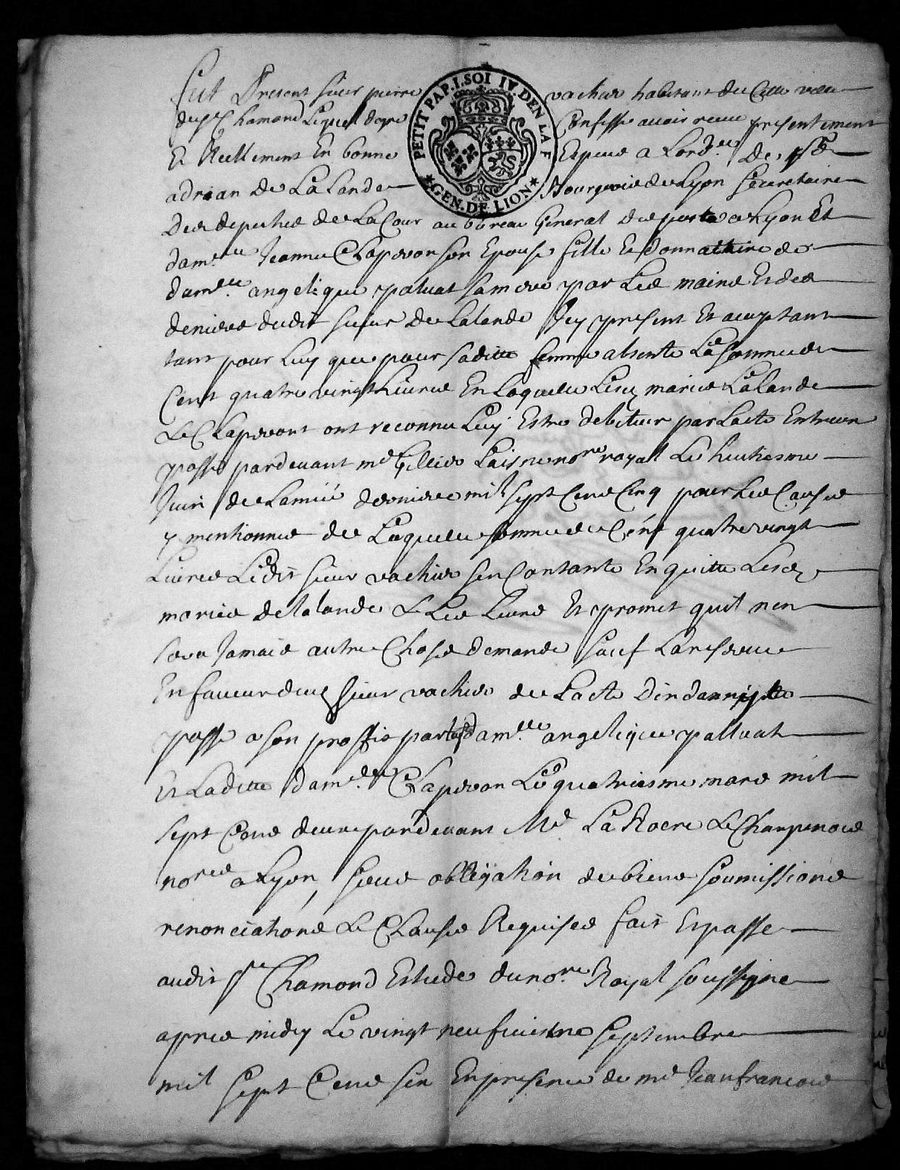 PETIT PAP. I. SOL IV. DEN LA F
★GEN. DE LION★
Fut Present sieur pierre vachier habitant de Cette ville
de St Chamond Lequel de gre Confesse avoir receu presentement
Et Reellement En bonne Espece a Lord.re De Sr
adrian de La Lande Bourgeois de Lyon Secretaire
Des deputes de La Cour au bureau General du poste a Lyon Et
dam.lle Jeanne Claperon son Epouse fille Et donnataire de
dam.lle angelique paluat sa mere par Les mains Et des
deniers dudit sieur de Lalande Icy present Et aceptant
tant pour Luy que pour saditte femme absente La somme de
Cent quatre vingt Livres En Laquelle Lesd maries Lalande
Et Claperont ont reconnu Luy Estre debiteur par Lacte Entreux
passe pardevant me Gillier Laisne nore royal Le huitiesme
Juin de Lannee derniere mil sept Cens Cinq pour Les Causes
y mentionnes de Laquelle somme de Cent quatre vingt
Livres Ledit sieur vachier sen Contante En quitte Lesd
maries de lalande Et Les Leurs Et promet quil nen
sera Jamais autre Chose demande sauf La reserve
En faveur dud sieur vachier de Lacte Dindannite
passe a son proffit par lesd dam.lle angelique palluat
Et Laditte dam.lle Claperon Le quatriesme mars mil
sept Cens deux pardevant Me La Rocre Et Champenois
nores a Lyon, sous obligation de biens soumissions
renonciations Et Clauses Requises fait Et passe
audit St Chamond Estude du nore Royal soussigne
apres midy Le vingt neufviesme septembre
mil sept Cens six En presence de me Jean francois